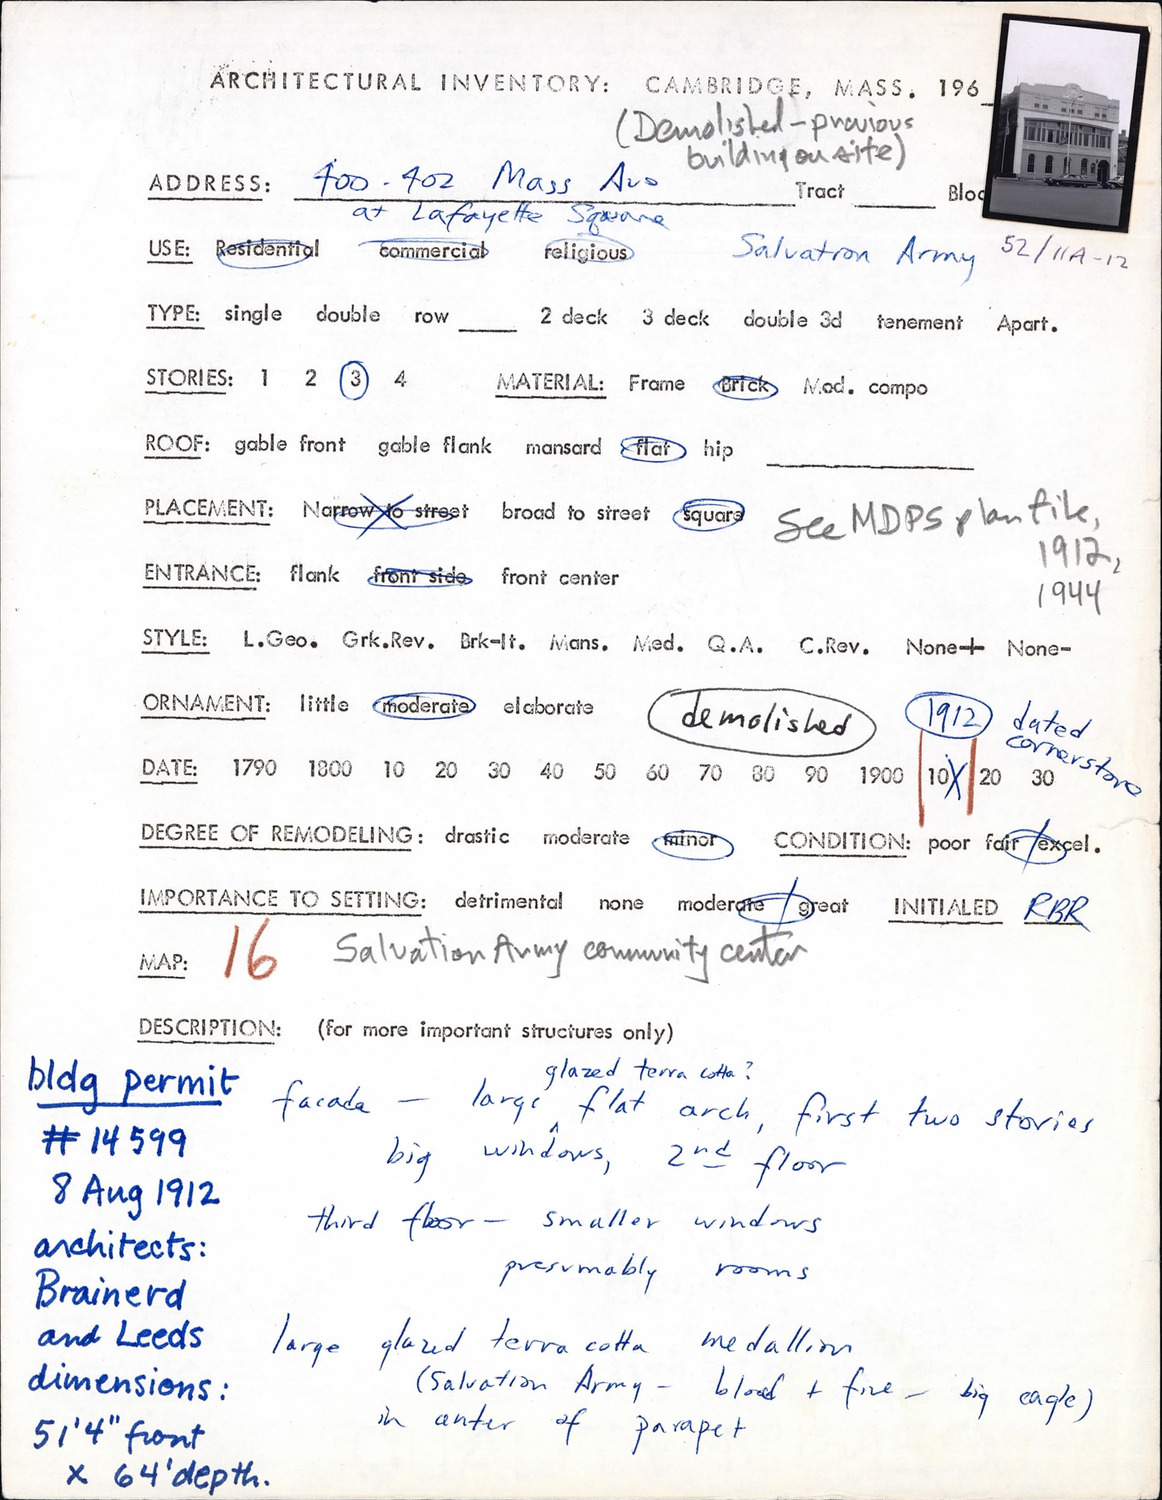 ARCHITECTURAL INVENTORY: CAMBRIDGE, MASS. 196_
(Demolished - previous
building on site)
ADDRESS: 400 - 402 Mass Ave Tract ____ Bloc
at Lafayette Square
USE: Residential commercial religious Salvation Army 52/11A-12
TYPE: single double row ____ 2 deck 3 deck double 3d tenement Apart.
STORIES: 1 2 3 4 MATERIAL: Frame Brick Mod. compo
ROOF: gable front gable flank mansard flat hip ____
PLACEMENT: Narrow to street broad to street square See MDPS plan file,
1912,
ENTRANCE: flank front side front center
1944
STYLE: L.Geo. Grk.Rev. Brk-It. Mans. Med. Q.A. C.Rev. None+ None-
ORNAMENT: little moderate elaborate demolished 1912 dated
cornerstone
DATE: 1790 1800 10 20 30 40 50 60 70 80 90 1900 10 X 20 30
DEGREE OF REMODELING: drastic moderate minor CONDITION: poor fair excel.
IMPORTANCE TO SETTING: detrimental none moderate great INITIALED RBR
MAP: 16 Salvation Army community center
DESCRIPTION: (for more important structures only)
bldg permit
# 14599
8 Aug 1912
architects:
Brainerd
and Leeds
dimensions:
51'4" front
x 64' depth.
glazed terra cotta?
facade — large flat arch, first two stories
big windows, 2nd floor
third floor — smaller windows
presumably rooms
large glazed terra cotta medallion
(Salvation Army - blood + fire - big eagle)
in center of parapet